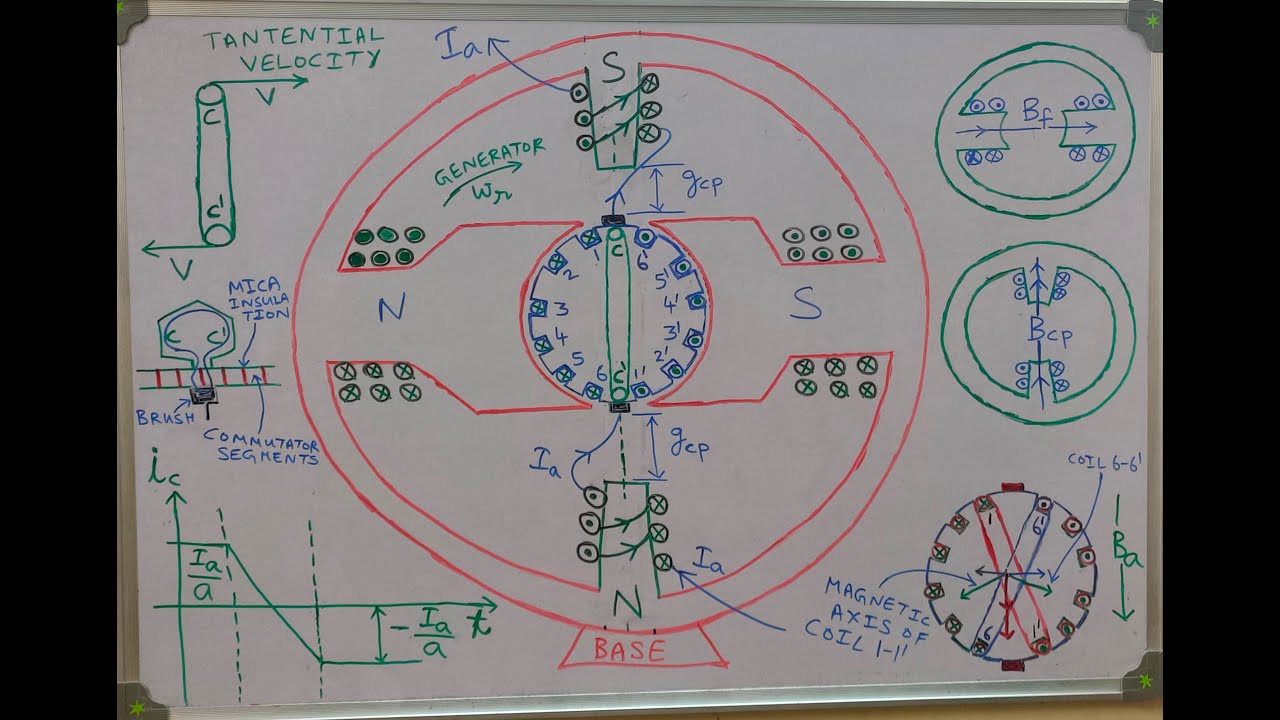 TANTENTIAL
VELOCITY
V
C
C'
V
MICA
INSULA
TION
C C'
BRUSH
COMMUTATOR
SEGMENTS
i_c
I_a/a
-I_a/a
t
I_a
S
GENERATOR
ω_r
g_cp
N
S
C
C'
1
2
3
4
5
6
6'
5'
4'
3'
2'
1'
I_a
g_cp
N
I_a
BASE
B_f
B_cp
COIL 6-6'
1
6'
6
1'
B_a
MAGNETIC
AXIS OF
COIL 1-1'